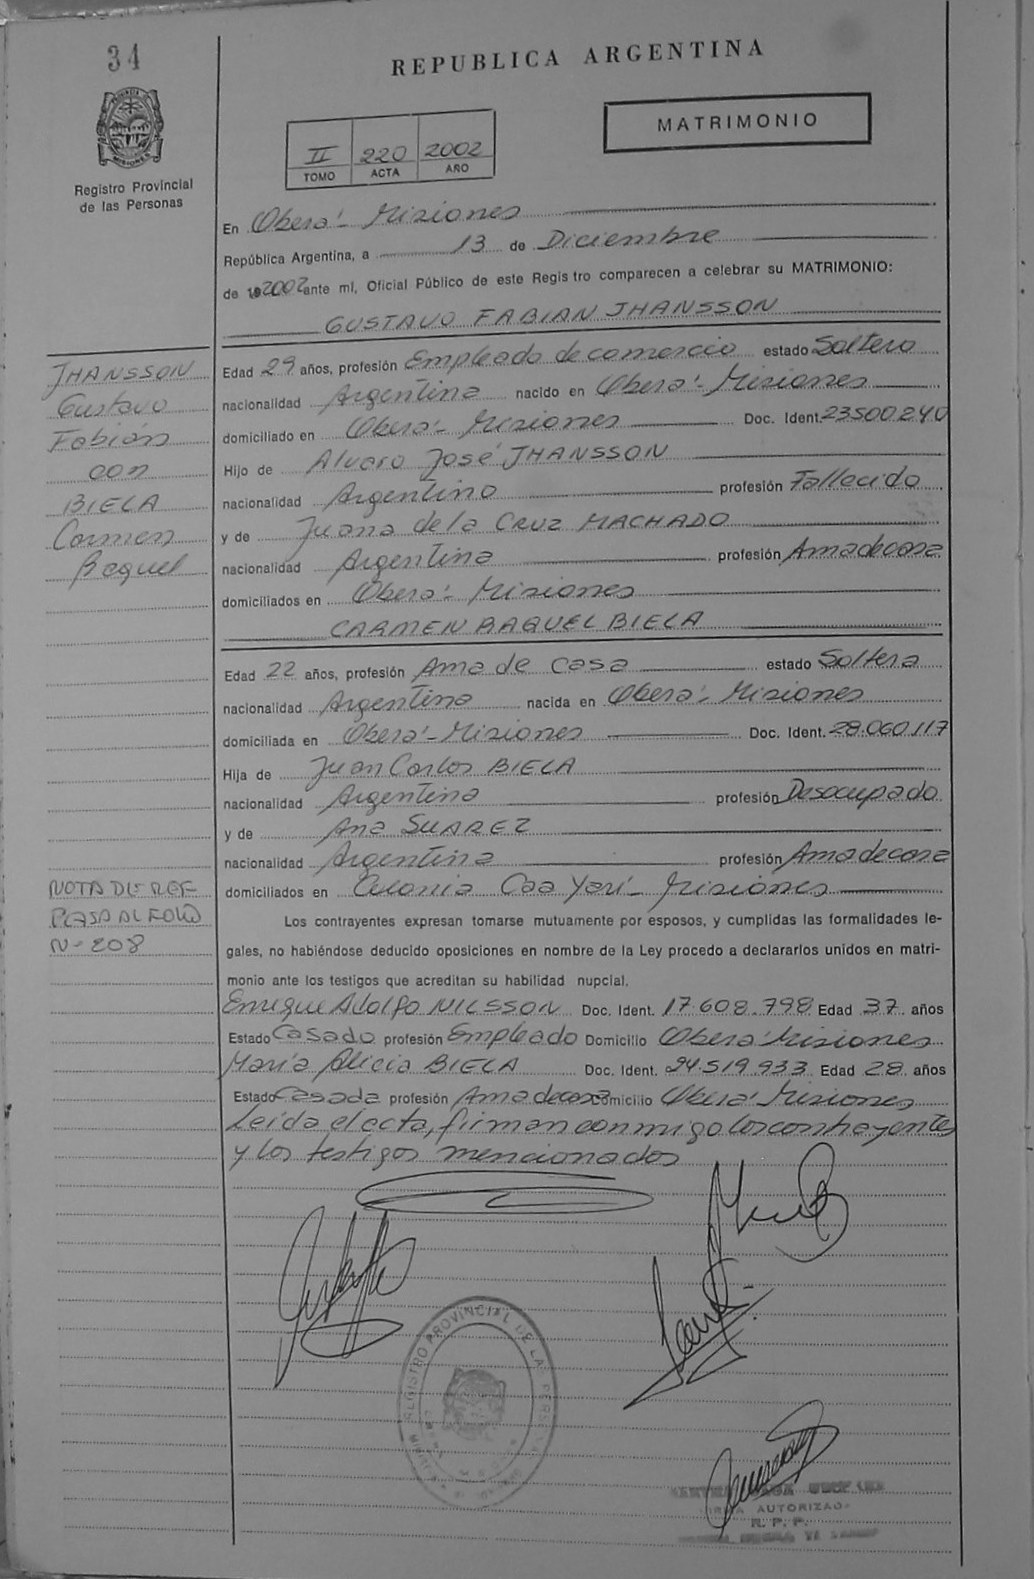 34
REPUBLICA ARGENTINA
MATRIMONIO
II 220 2002
TOMO ACTA AÑO
Registro Provincial
de las Personas
En Oberá - Misiones
República Argentina, a 13 de Diciembre
de 2002 ante mí, Oficial Público de este Registro comparecen a celebrar su MATRIMONIO:
GUSTAVO FABIAN JHANSSON
JHANSSON
Gustavo
Fabián
con
BIELA
Carmen
Raquel
Edad 29 años, profesión Empleado de comercio estado Soltero
nacionalidad Argentina nacido en Oberá - Misiones
domiciliado en Oberá - Misiones Doc. Ident. 23500240
Hijo de Alvaro José JHANSSON
nacionalidad Argentino profesión Fallecido
y de Juana de la CRUZ MACHADO
nacionalidad Argentina profesión Ama de casa
domiciliados en Oberá - Misiones
CARMEN RAQUEL BIELA
Edad 22 años, profesión Ama de casa estado Soltera
nacionalidad Argentina nacida en Oberá - Misiones
domiciliada en Oberá - Misiones Doc. Ident. 28.060.117
Hija de Juan Carlos BIELA
nacionalidad Argentina profesión Desocupado
y de Ana SUAREZ
nacionalidad Argentina profesión Ama de casa
domiciliados en Colonia Caa Yarí - Misiones
NOTA DE REF
PLASA AL FOLIO
N-208
Los contrayentes expresan tomarse mutuamente por esposos, y cumplidas las formalidades le-
gales, no habiéndose deducido oposiciones en nombre de la Ley procedo a declararlos unidos en matri-
monio ante los testigos que acreditan su habilidad nupcial.
Enrique Adolfo NILSSON Doc. Ident. 17.608.798 Edad 37 años
Estado Casado profesión Empleado Domicilio Oberá Misiones
María Alicia BIELA Doc. Ident. 24.519.933 Edad 28 años
Estado Casada profesión Ama de casa Domicilio Oberá Misiones
Leída el acta, firman conmigo los contrayentes
y los testigos mencionados
REGISTRO PROVINCIAL DE LA PERS
FIRMA AUTORIZAD
R. P. P.